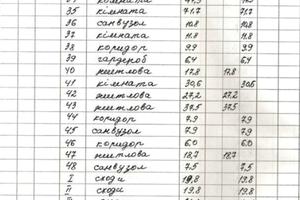 35 кімната 71.7 71.7
36 санвузол 10.8 10.8
37 кімната 11.8 11.8
38 коридор 9.9 9.9
39 гардероб 6.4 6.4
40 житлова 17.8 17.8
41 кімната 30,6 30,6
42 житлова 27,2 27,2
43 житлова 37,5 37,5
44 коридор 7.9 7.9
45 санвузол 7.9 7.9
46 коридор 6.0 6.0
47 житлова 18.7 18.7
48 санвузол 7.5 7.5
I сходи 19.8 19.8
II сходи 19.8 19.8